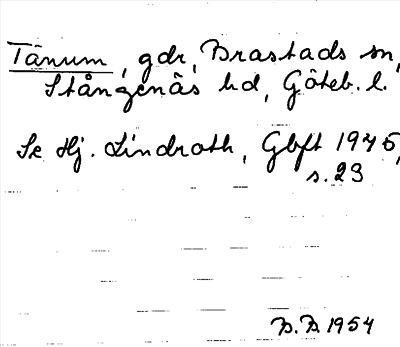 Tånum, gdr, Brastads sn,
Stångenäs hd, Göteb. l.
Se Hj. Lindroth, Gbft 1945,
s. 23
B.B. 1954